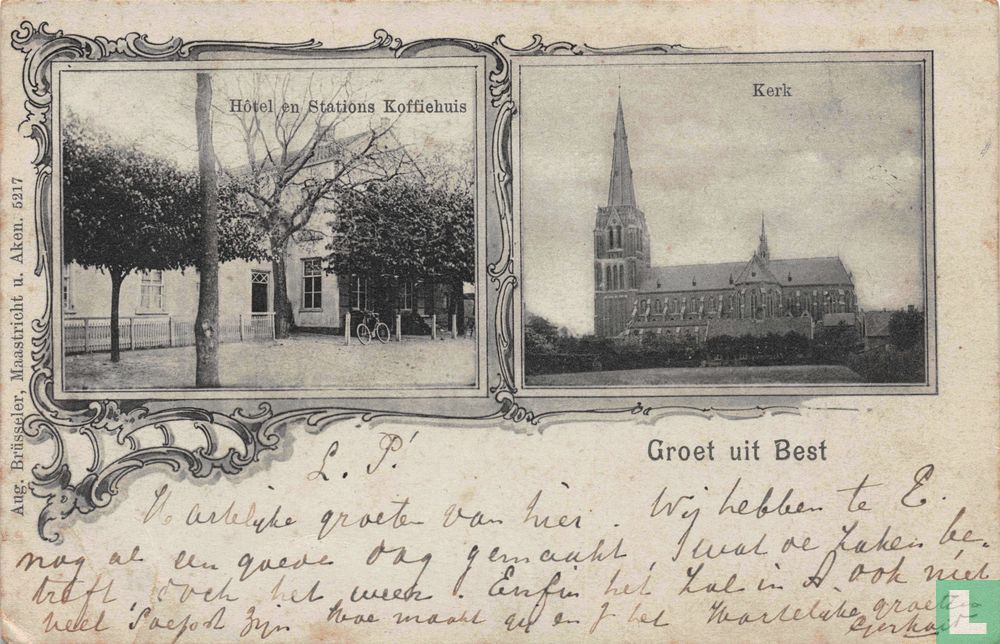 Hôtel en Stations Koffiehuis
Kerk
Aug. Brüsseler, Maastricht u. Aken. 5217
Groet uit Best
L. P.
Hartelijke groeten van hier. Wij hebben te E.
nog al een goede dag gemaakt, wat de zaken be-
treft, doch het weer. Enfin het zal in A. ook niet
veel zijn Hoe maakt gij en J het Hartelijke groeten
Gerhard
L